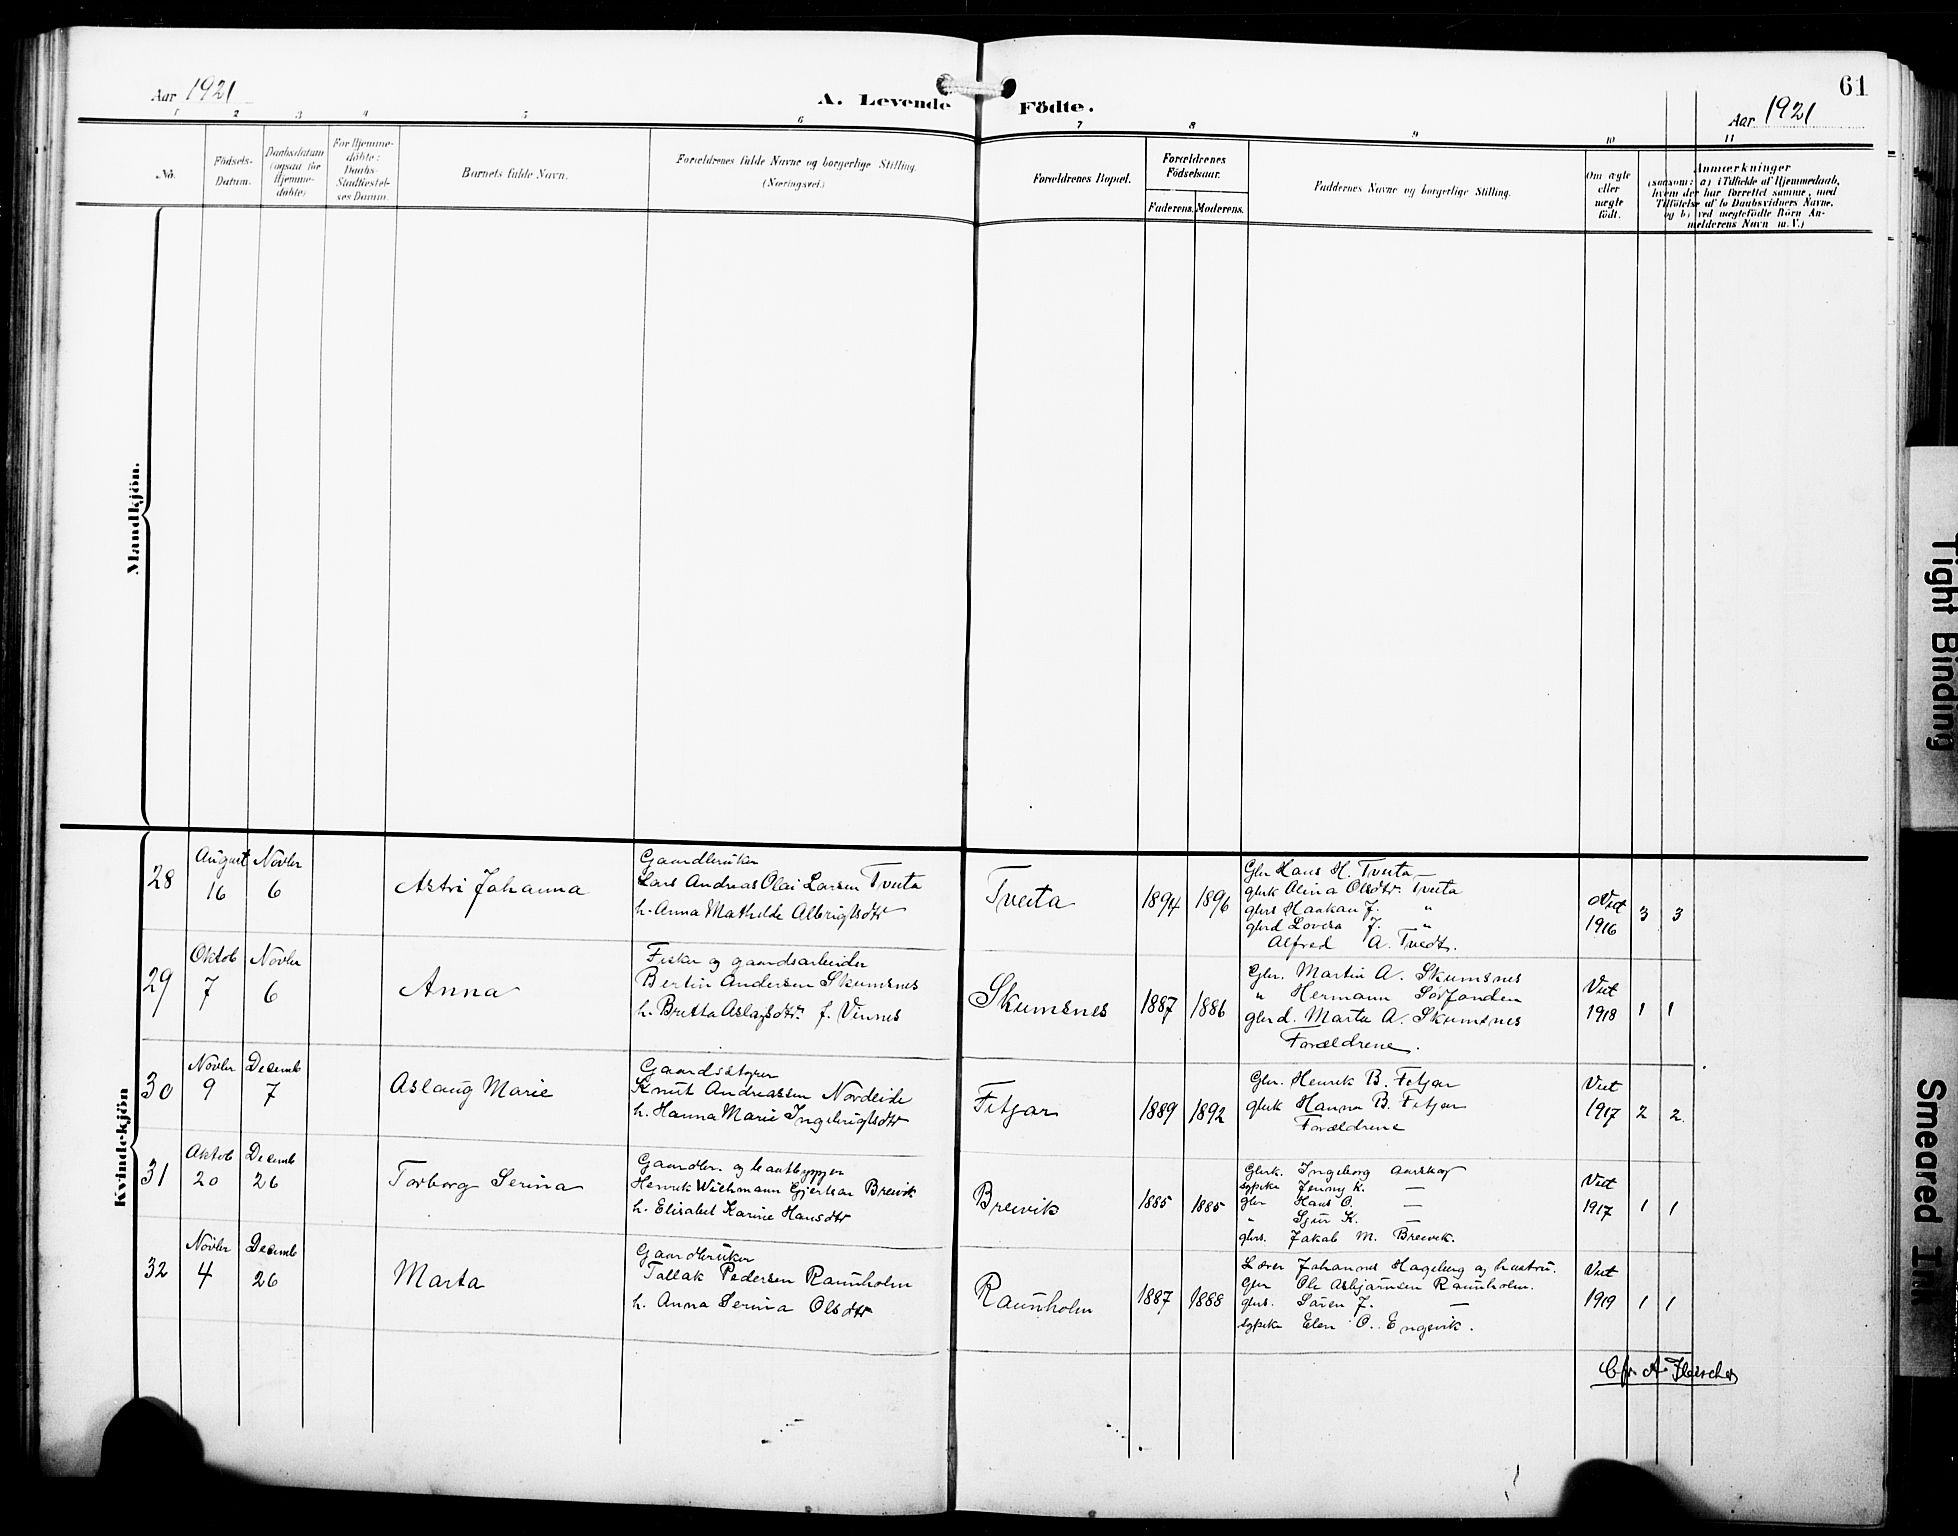 Aar 1921
A. Levende Födte.
61
Aar 1921
1 2 3 4 5 6 7 8 9 10 11
No.
Födsels-
Datum.
Daabsdatum
(ogsaa for
Hjemme-
døbte)
For Hjemme-
döbte:
Daabs-
Stadfæstel-
ses Datum.
Barnets fulde Navn.
Forældrenes fulde Navne og borgerlige Stilling.
(Næringsvei.)
Forældrenes Bopæl.
Forældrenes
Födselsaar.
Faderens. Moderens.
Faddernes Navne og borgerlige Stilling.
Om ægte
eller
uægte
födt.
Anmærkninger
(saasom: a) i Tilfælde af Hjemmedaab,
hvem der har forrettet samme, med
Tilföielse af to Daabsvidners Navne,
og b) ved uægtefödte Börn An-
melderens Navn m. V.)
Mandkjön.
Kvindekjön
28
August
16
Novbr
6
Astri Johanna
Gaardbruker
Lars Andreas Olai Larsen Tveita
h. Anna Mathilde Albrigtsdtr
Tveita
1894
1896
Gbr Hans H. Tveita
gbrk Alina Olsdtr. Tveita
gbrs Haakan J. "
gbrd Lovisa J. "
Alfred A. Tvedt.
Viet
1916
3
3
29
Oktob
7
Novbr
6
Anna
Fisker og gaardsarbeider
Bertin Andersen Skumsnes
h. Britta Aslagsdtr. f. Vinnes
Skumsnes
1887
1886
Gbr. Martin A. Skumsnes
" Hermann Sørfonden
gbrd. Marta A. Skumsnes
Forældrene.
Viet
1918
1
1
30
Novbr
9
Decemb
7
Aslaug Marie
Gaardstyrer
Knut Andreassen Nordeide
h. Hanna Marie Ingebrigtsdtr
Fitjar
1889
1892
Gbr. Henrik B. Fitjar
gbrk Hanna B. Fitjar
Forældrene
Viet
1917
2
2
31
Oktob
20
Decemb
26
Torborg Serina
Gaardbr. og baatbygger
Henrik Wichmann Gjertsen Breivik
h. Elisabet Karine Hansdtr
Breivik
1885
1885
Gbrk. Ingeborg Aarskog
sypike Jenny K. —
gbr Hans O. —
" Sjur K. —
gbrs. Jakob M. Breivik.
Viet
1917
1
1
32
Novbr
4
Decemb
26
Marta
Gaardbruker
Tallak Pedersen Raunholm
h. Anna Serina Olsdtr
Raunholm
1887
1888
Lærer Johannes Hageberg og hustru.
Gbr Ole Asbjørnsen Raunholm.
gbrs. Søren J. —
sypike Elen O. Engevik.
Viet
1919
1
1
Cfr A. Fleischer
Tight Binding
Smeared Ink